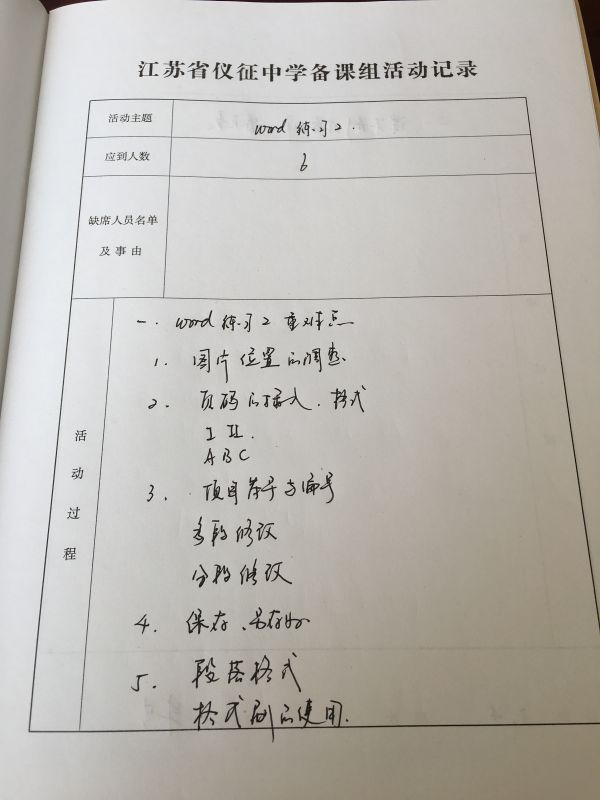 江苏省仪征中学备课组活动记录
活动主题
word 练习2.
应到人数
6
缺席人员名单
及事由
活动过程
一. word 练习2 重难点
1. 图片位置的调整
2. 页码的插入.格式
I II.
A B C
3. 项目符号与编号
多段修改
分段修改
4. 保存、另存为
5. 段落格式
格式刷的使用.